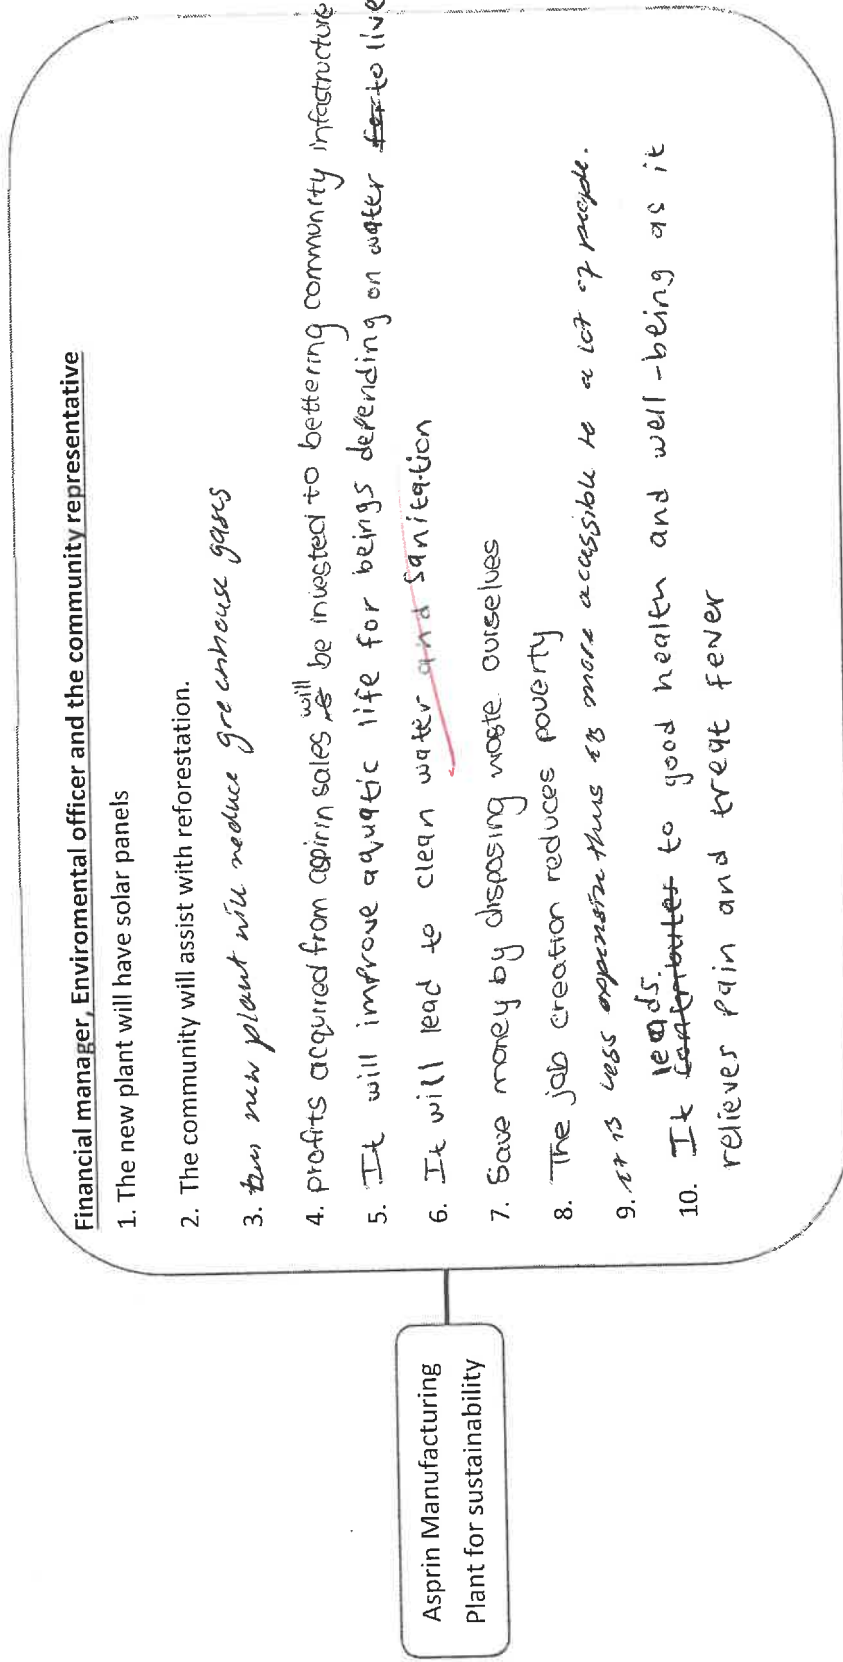 Asprin Manufacturing
Plant for sustainability
Financial manager, Enviromental officer and the community representative
1. The new plant will have solar panels
2. The community will assist with reforestation.
3. new plant will reduce greenhouse gases
4. profits acquired from aspirin sales will be invested to bettering community infastructure
5. It will improve aquatic life for beings depending on water to live
6. It will lead to clean water and sanitation
7. Save money by disposing waste ourselves
8. The job creation reduces poverty
9. it is less expensive thus is more accessible to a lot of people.
10. It leads to good health and well-being as it
relieves pain and treat fever